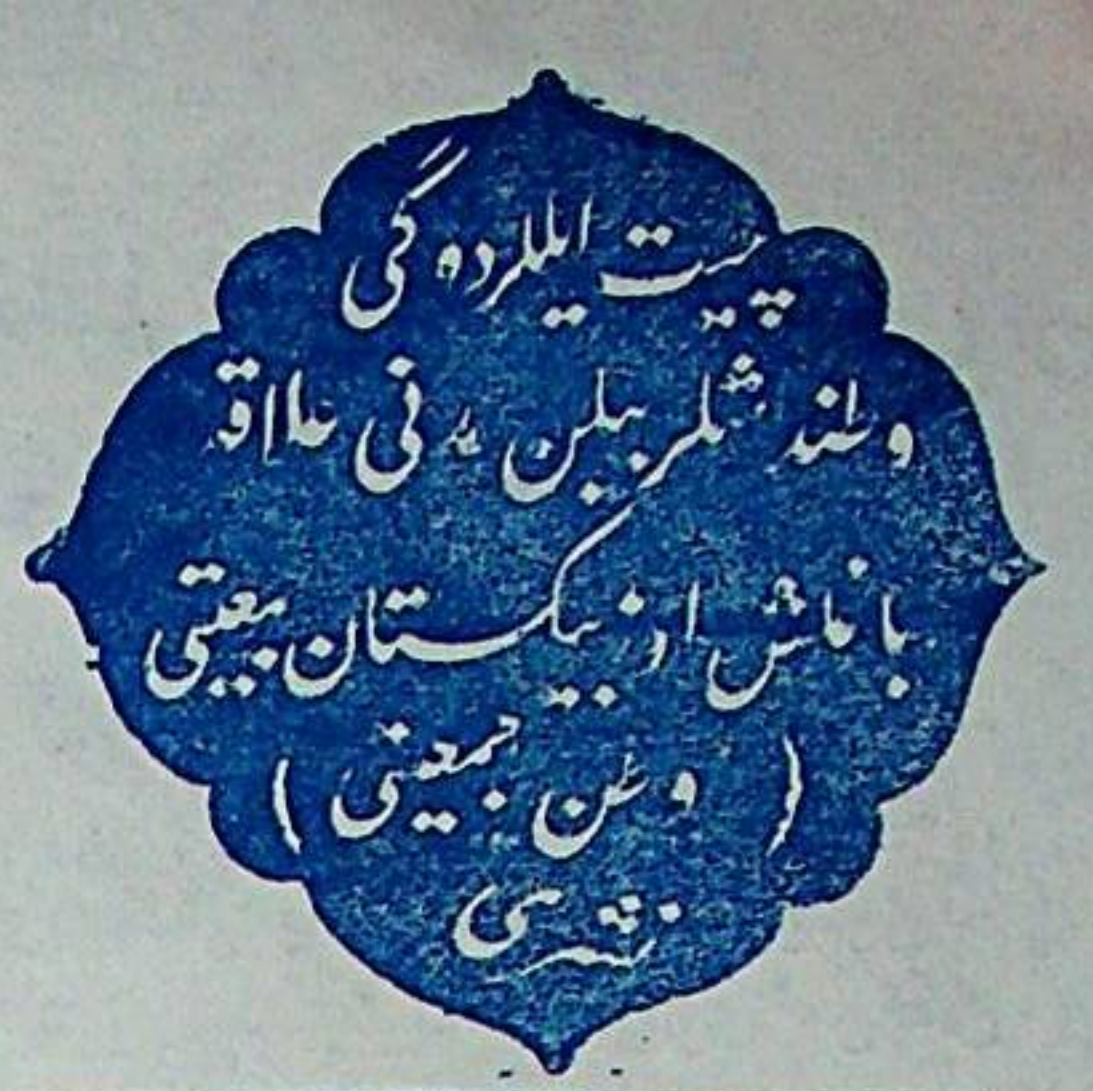 چیت ایللردە گی
وطنداشلر بیلن مدنی علاقە
باغلاش اوزبیکستان جمعیتی
( وطن جمعیتی )
نشرسی